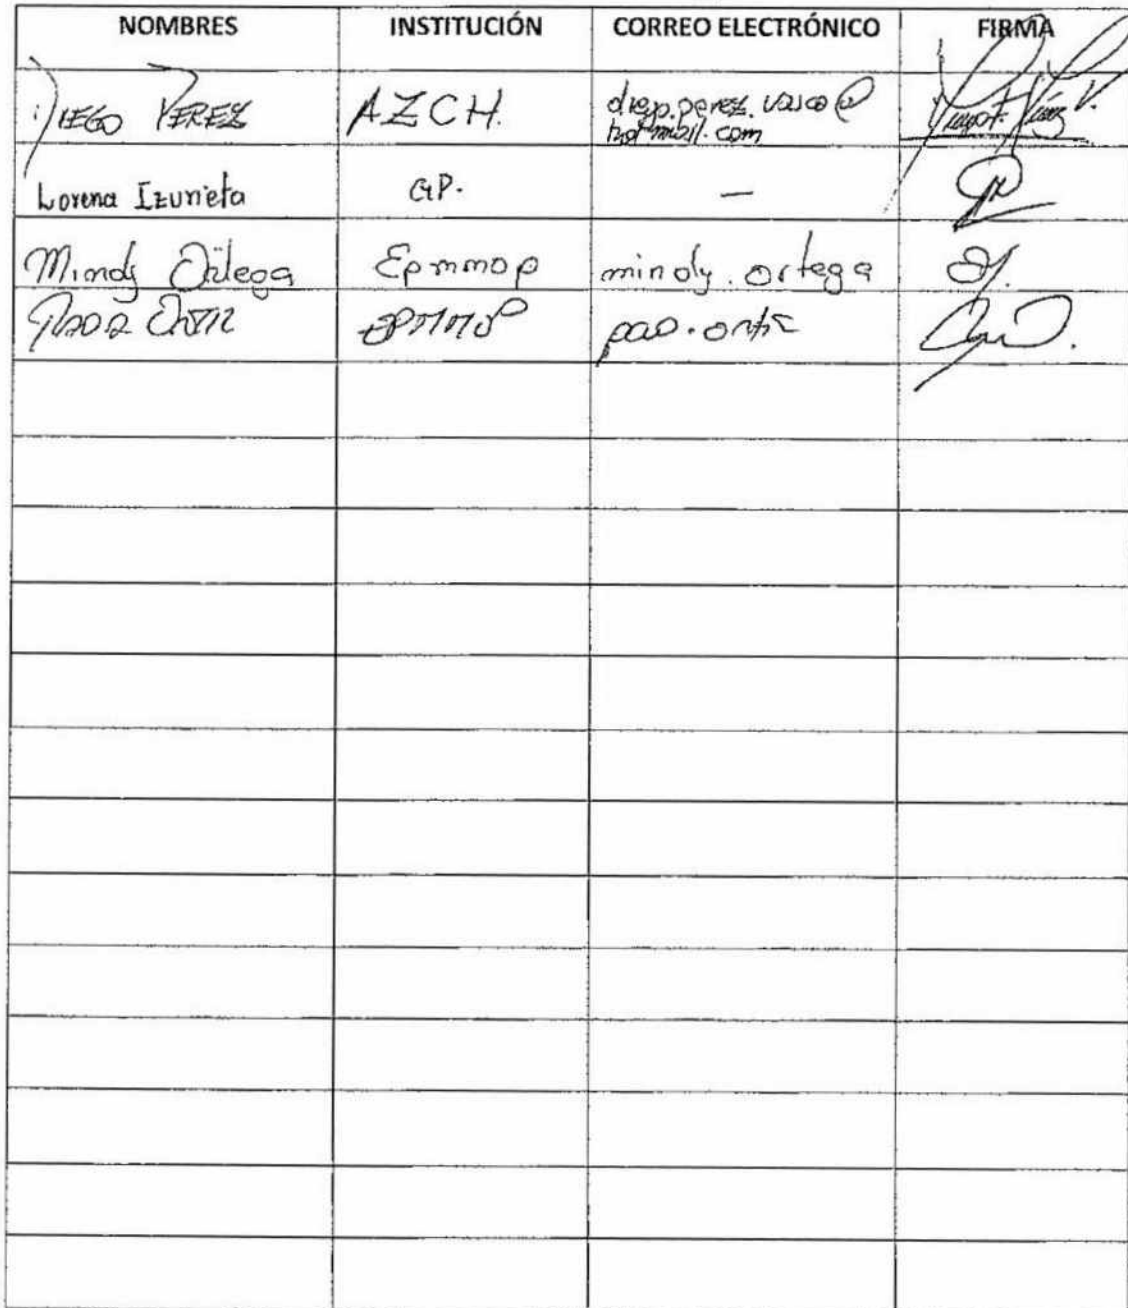 NOMBRES INSTITUCIÓN CORREO ELECTRÓNICO FIRMA
DIEGO PEREZ AZCH. diego.perez.vasco@
hotmail.com
Lorena Izurieta GP. —
Mindy Ortega Epmmop mindy.ortega
Ortiz EPMMOP pao.ortiz